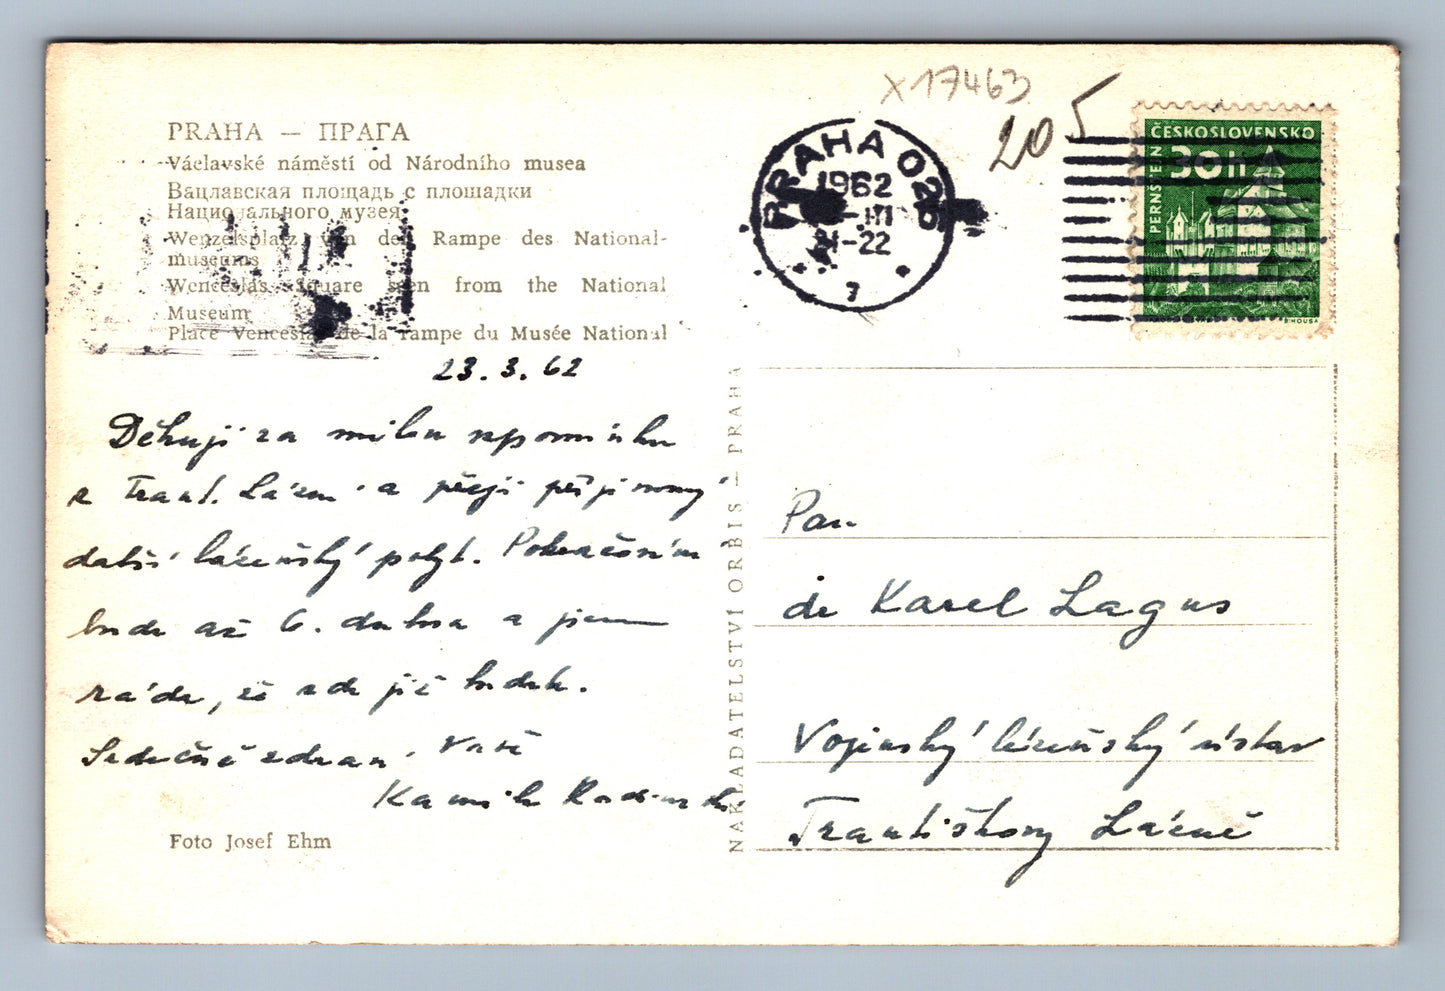 PRAHA — ПРАГА
Václavské náměstí od Národního musea
Вацлавская площадь с площадки
Национального музея
Wenzelsplatz von der Rampe des National-
museums
Wenceslas Square seen from the National
Museum
Place Venceslas de la rampe du Musée National
23.3.62
Děkuji za milou vzpomínku
z Frant. Lázní a přeji příjemný
další lázeňský pobyt. Pokračování
bude až 6. dubna a jsem
ráda, že zde již budete.
Srdečně zdraví Vaše
Kamila
Foto Josef Ehm
NAKLADATELSTVÍ ORBIS — PRAHA
X17463
205
PRAHA 025
1962
III
21-22
7
ČESKOSLOVENSKO
30h
PERNŠTEJN
B. HOUSA
Pan
dr Karel Lagus
Vojenský lázeňský ústav
Františkovy Lázně